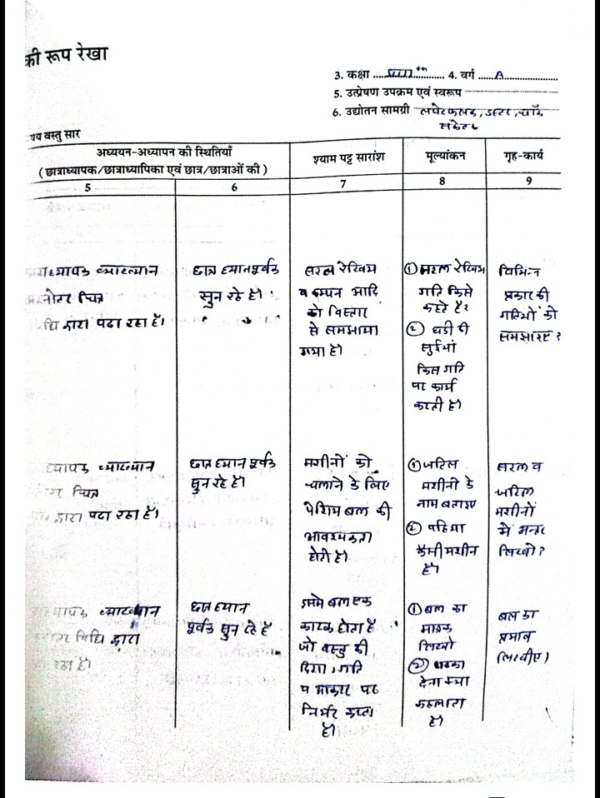 की रूप रेखा
3. कक्षा ...VIIIth... 4. वर्ग ...A...
5. उत्प्रेषण उपक्रम एवं स्वरूप
6. उद्योतन सामग्री लपेटफलक, डस्टर, चॉक
संकेतक
वस्तु सार
अध्ययन-अध्यापन की स्थितियाँ
(छात्राध्यापक/छात्राध्यापिका एवं छात्र/छात्राओं की)
श्याम पट्ट सारांश
मूल्यांकन
गृह-कार्य
5 6 7 8 9
व्याख्यान
चित्र
द्वारा पढा रहा है।
छात्र ध्यानपूर्वक
सुन रहे है।
सरल रेखिय
व कम्पन आदि
को विस्तार
से समझाया
गया है।
① सरल रेखिय
गति किसे
कहते है?
② घडी की
सुईयां
किस गति
पर कार्य
करती है।
विभिन्न
प्रकार की
गतियों को
समझाइए?
व्याख्यान
चित्र
द्वारा पढा रहा है।
छात्र ध्यान पूर्वक
सुन रहे है।
मशीनों को
चलाने के लिए
पेशिय बल की
आवश्यकता
होती है।
① जटिल
मशीनो के
नाम बताइए
② पहिया
कैसी मशीन
है।
सरल व
जटिल
मशीनों
में अन्तर
लिखो?
व्याख्यान
विधि द्वारा
रहा है।
छात्र ध्यान
पूर्वक सुन रहे है
इसमे बल एक
कारक होता है
जो वस्तु की
दिशा, गति
व आकार पर
निर्भर करता
है।
① बल का
मात्रक
लिखो
② धक्का
देना क्या
कहलाता
है।
बल का
प्रभाव
लिखीए।